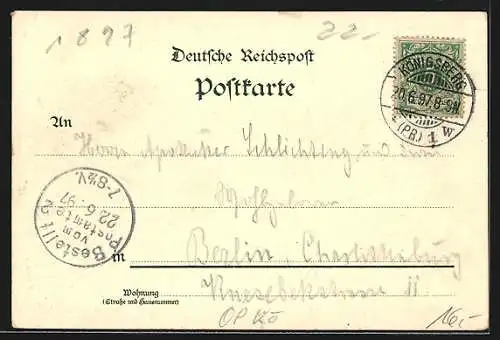 1897
22.-
Deutsche Reichspost
Postkarte
KÖNIGSBERG
20.6.97.8-9N.
(PR.) 1 W
An
Herrn Apotheker Schlichting und
Bestellt
vom
Postamte 2
22.6.97
7-8½V.
in Berlin, Charlottenburg
Wohnung
(Straße und Hausnummer)
Knesebeckstrasse 11
16,-